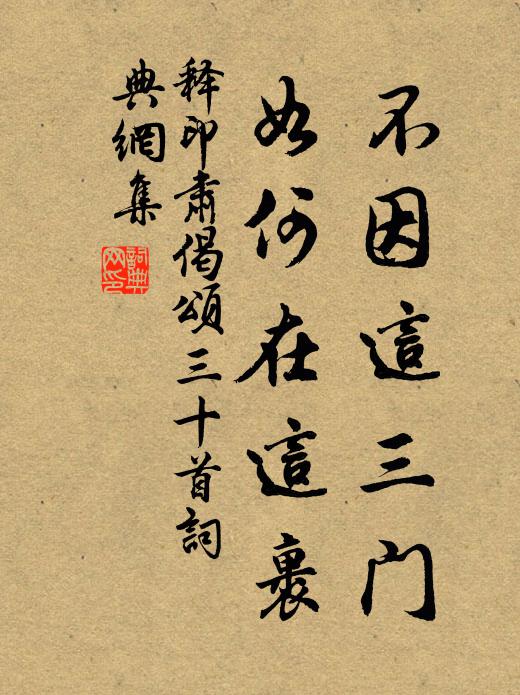 不因這三門
如何在這裏
释印肅偈頌三十首詞
典網集
詞典網印